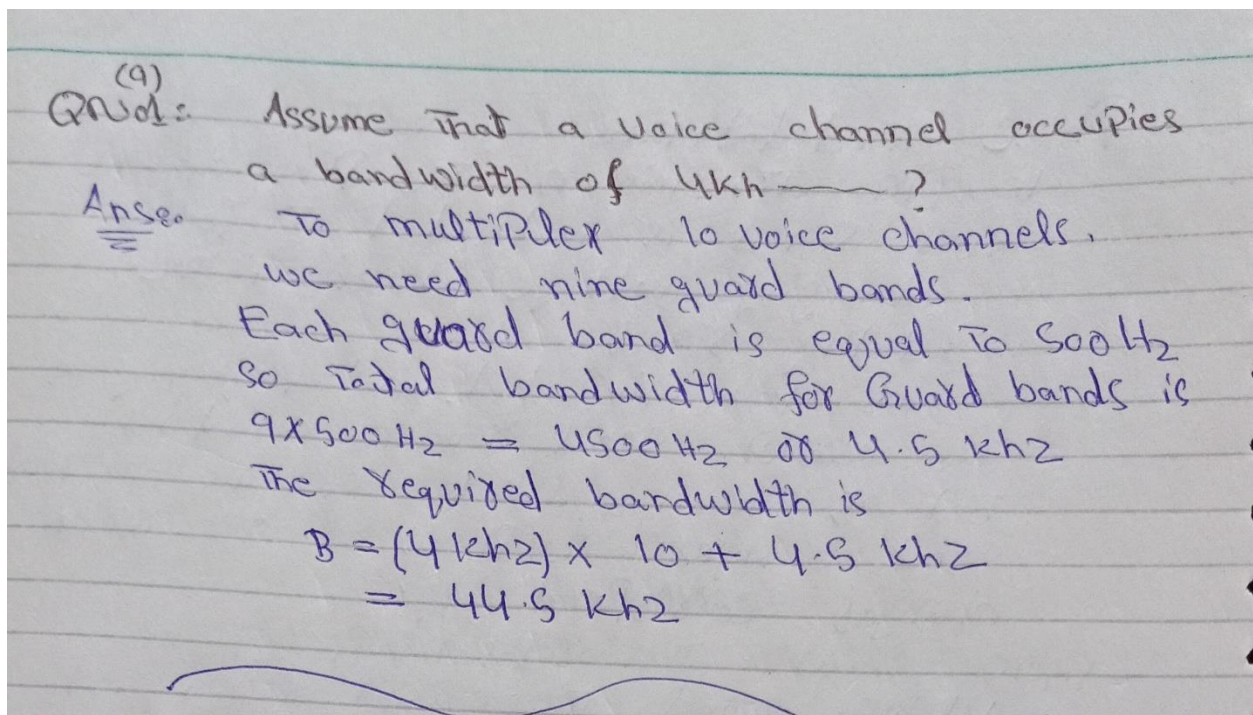 (9)
QNo1: Assume That a Voice channel occupies
a bandwidth of 4kh —— ?
Anse. To multiplex 10 voice channels.
we need nine guard bands.
Each guard band is equal To 500 Hz
So Total bandwidth for Guard bands is
9 x 500 Hz = 4500 Hz or 4.5 khz
The required bandwidth is
B = (4 khz) x 10 + 4.5 khz
= 44.5 khz